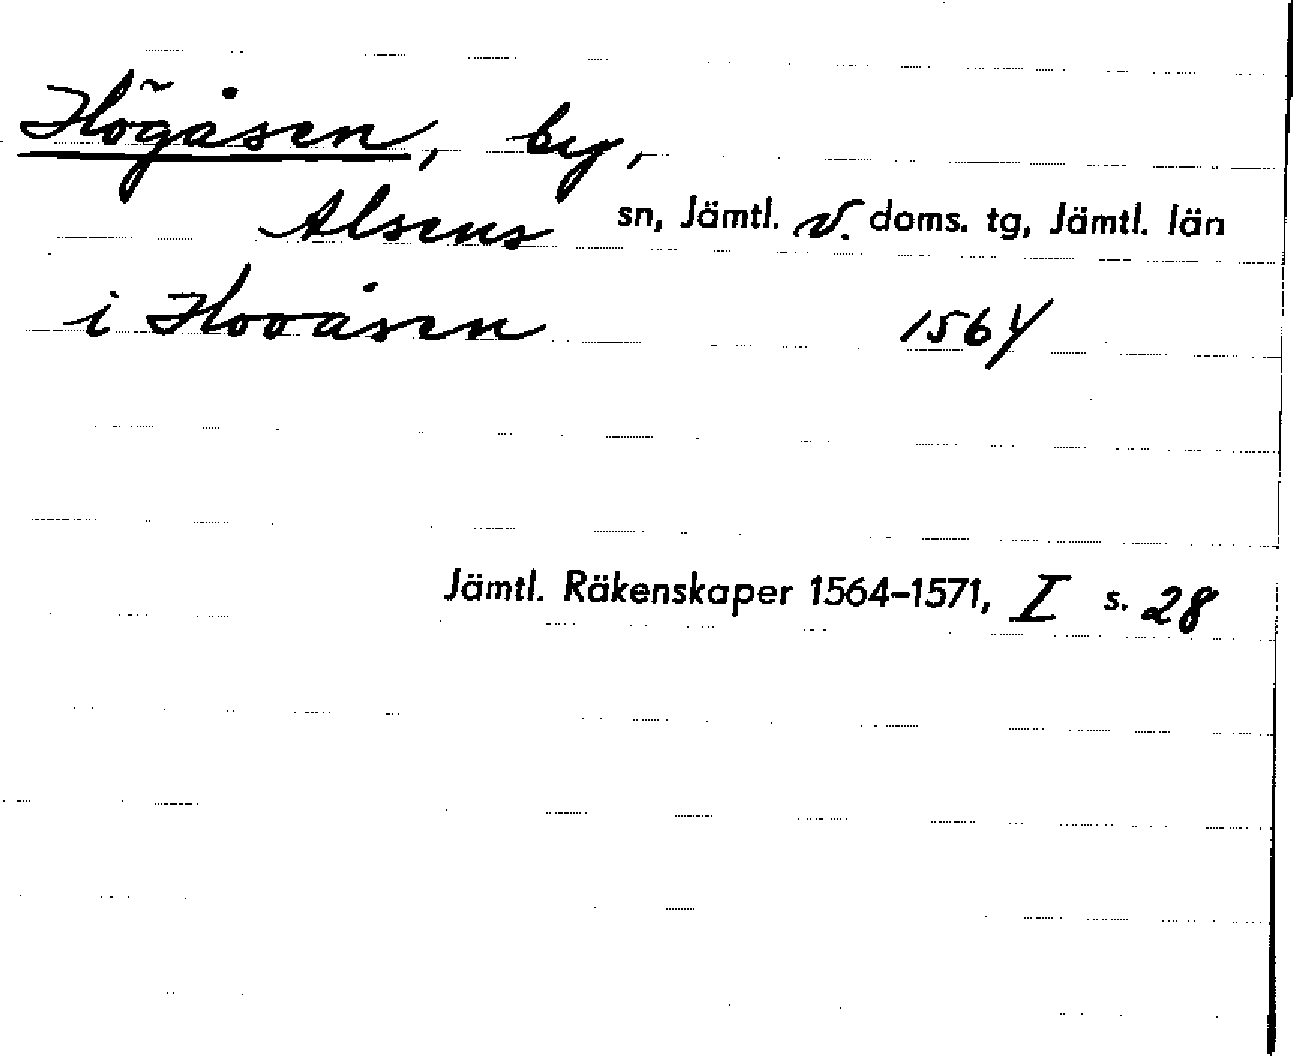 Högåsen, by,
Alsens sn, Jämtl. v. doms. tg, Jämtl. län
i Hooåsen 1564
Jämtl. Räkenskaper 1564-1571, I s. 28